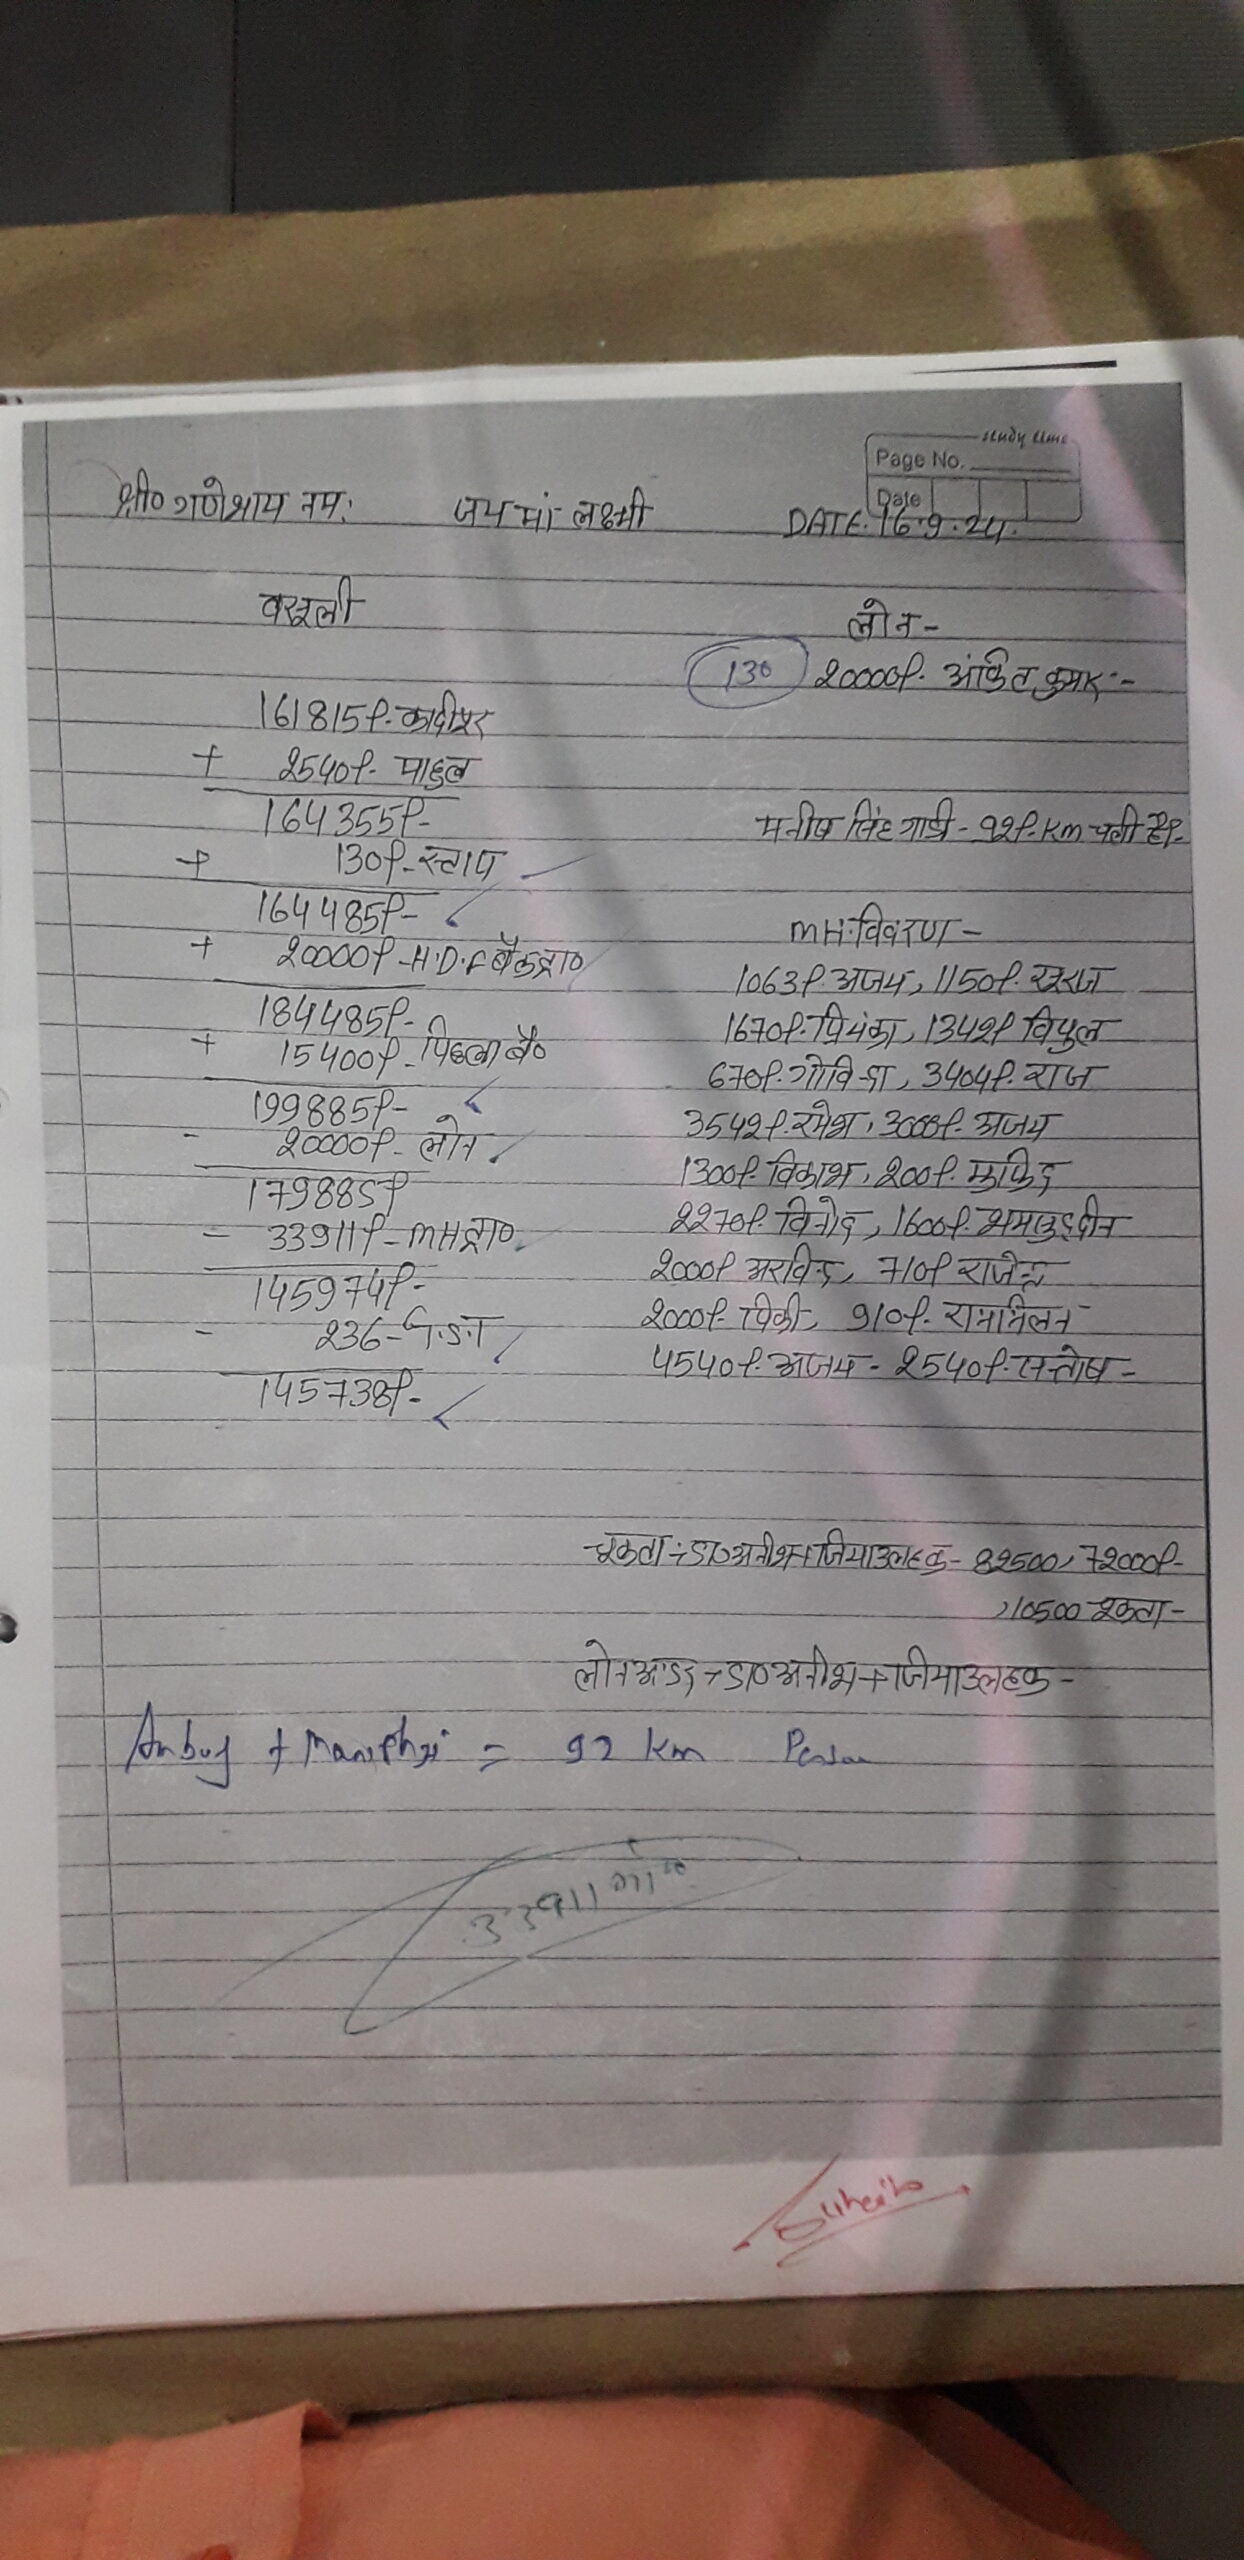 study time
Page No.
Date
श्री० गणेशाय नमः जय मां लक्ष्मी DATE. 16.9.24.
वसूली
लोन-
130 20000₹. अंकित कुमार :-
161815₹. कादीपुर
+ 2540₹.
164355₹-
मनीष सिंह गाडी - 92₹. Km चली है₹-
+ 130₹-स्टाप
164485₹-
MH.विवरण -
+ 20000₹ -H.D.F बैंक द्वा०
1063₹. अजय, 1150₹. सूरज
184485₹-
1670₹. प्रियंका, 1342₹ विपुल
+ 15400₹ - पिछला बै०
670₹. गोविन्दा, 3404₹. राज
199885₹-
3542₹. रमेश, 3000₹. अजय
- 20000₹- लोन
1300₹. विकाश, 200₹.
179885₹
2270₹. विनोद, 1600₹.
- 33911₹-MHद्वा०
2000₹ अरविन्द, 710₹ राजेन्द्र
145974₹-
2000₹. पिंकी, 910₹. राममिलन
- 236-G.S.T
4540₹. अजय - 2540₹. सन्तोष -
145738₹-
÷ डा०अनीश+जियाउलहक- 82500, 72000₹-
,10500
लोन अंडर ÷ डा०अनीश+जियाउलहक-
+ = 92 km
33911